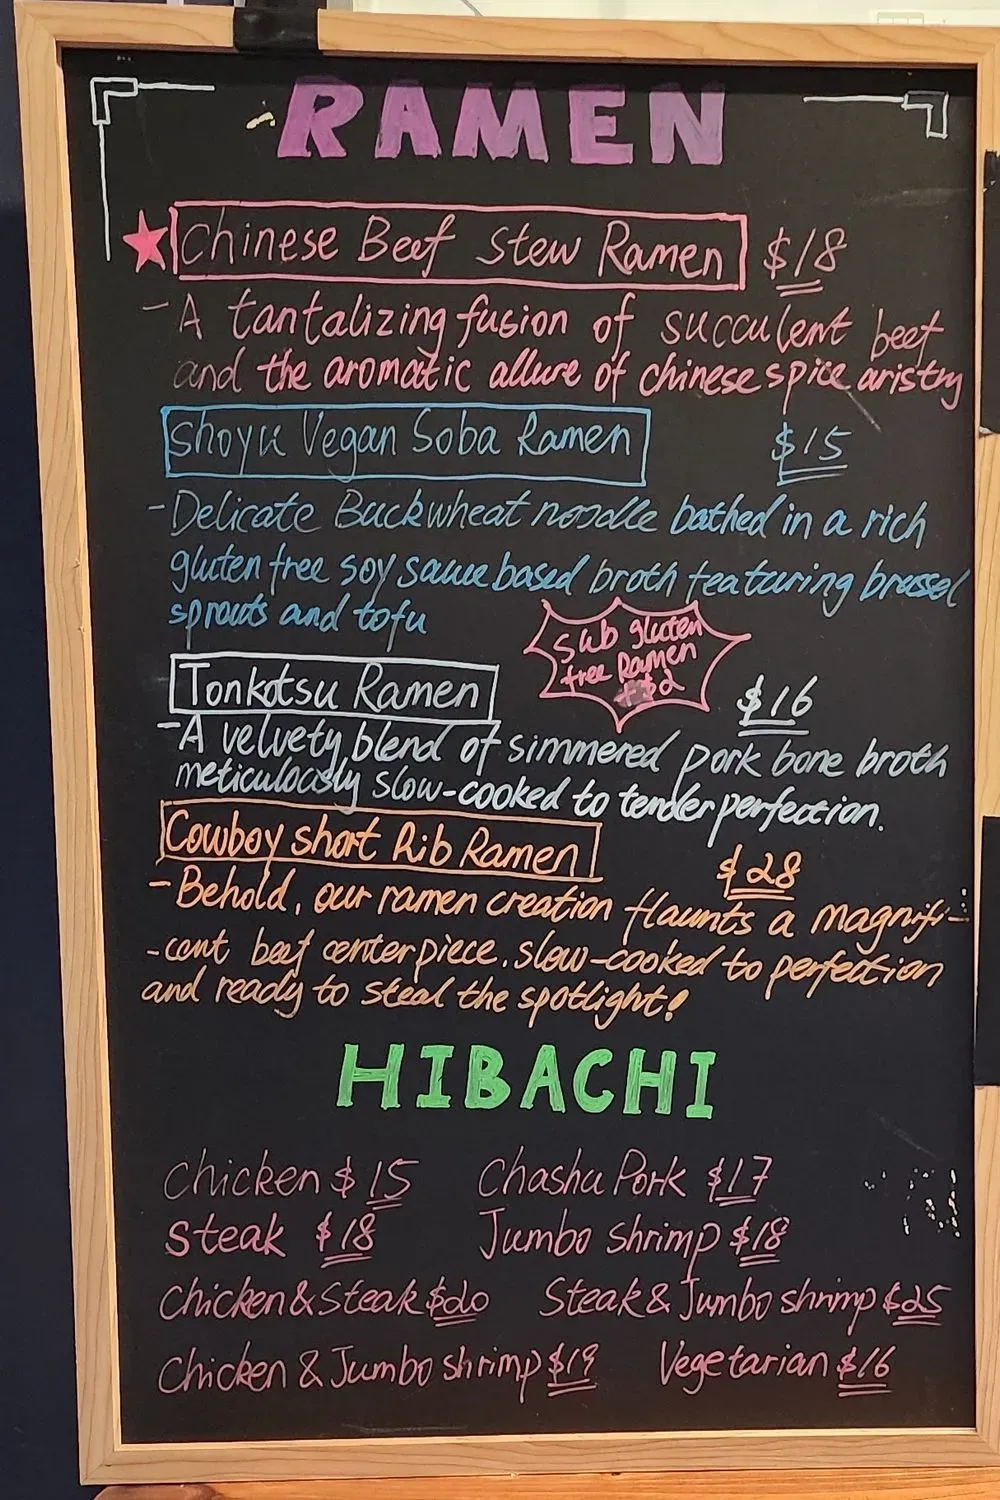 RAMEN
Chinese Beef Stew Ramen $18
- A tantalizing fusion of succulent beef
and the aromatic allure of chinese spice aristry
Shoyu Vegan Soba Ramen $15
- Delicate Buckwheat noodle bathed in a rich
gluten free soy sauce based broth featuring brussel
sprouts and tofu
Sub gluten
free Ramen
+$2
Tonkotsu Ramen $16
- A velvety blend of simmered pork bone broth
meticulously slow-cooked to tender perfection.
Cowboy short Rib Ramen $28
- Behold, our ramen creation flaunts a magnifi-
-cent beef centerpiece. slow-cooked to perfection
and ready to steal the spotlight!
HIBACHI
Chicken $15 Chashu Pork $17
Steak $18 Jumbo shrimp $18
Chicken & Steak $20 Steak & Jumbo shrimp $25
Chicken & Jumbo shrimp $19 Vegetarian $16